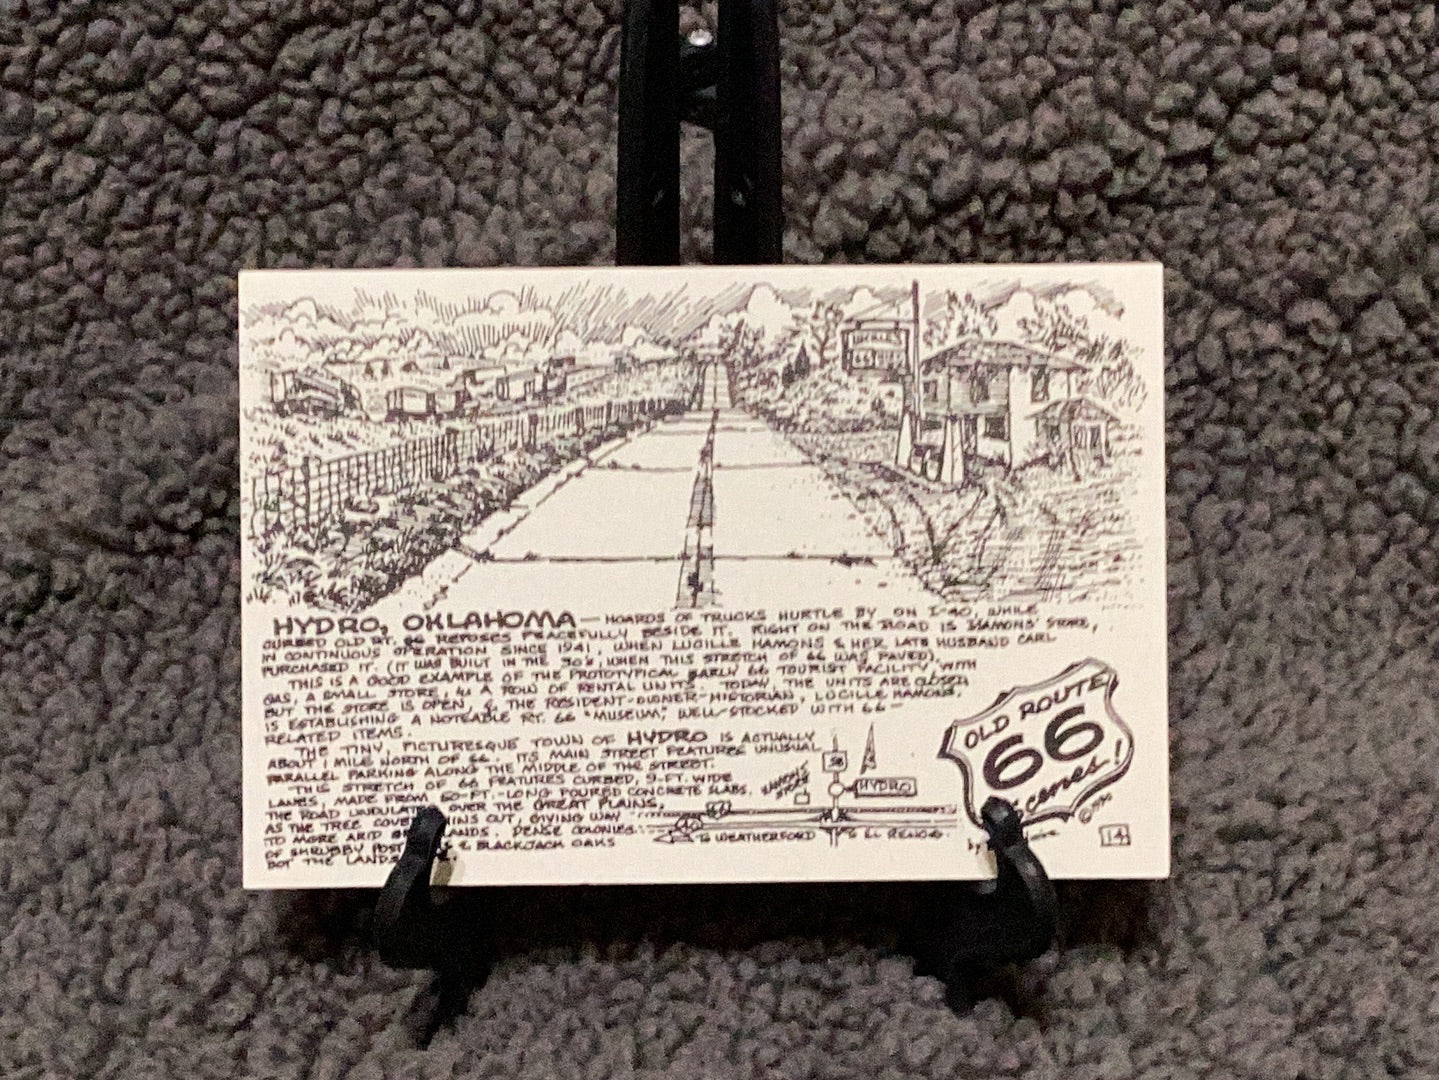 LUCILLE'S
HYDRO, OKLAHOMA — HOARDS OF TRUCKS HURTLE BY ON I-40, WHILE
CURBED OLD RT. 66 REPOSES PEACEFULLY BESIDE IT. RIGHT ON THE ROAD IS HAMONS' STORE,
IN CONTINUOUS OPERATION SINCE 1941, WHEN LUCILLE HAMONS & HER LATE HUSBAND CARL
PURCHASED IT. (IT WAS BUILT IN THE 30'S, WHEN THIS STRETCH OF 66 WAS PAVED).
THIS IS A GOOD EXAMPLE OF THE PROTOTYPICAL EARLY 66 TOURIST FACILITY, WITH
GAS, A SMALL STORE, & A ROW OF RENTAL UNITS. TODAY, THE UNITS ARE CLOSED
BUT THE STORE IS OPEN, & THE RESIDENT-OWNER-HISTORIAN, LUCILLE HAMONS,
IS ESTABLISHING A NOTEABLE RT. 66 "MUSEUM," WELL-STOCKED WITH 66-
RELATED ITEMS.
THE TINY, PICTURESQUE TOWN OF HYDRO IS ACTUALLY
ABOUT 1 MILE NORTH OF 66. ITS MAIN STREET FEATURES UNUSUAL
PARALLEL PARKING ALONG THE MIDDLE OF THE STREET.
THIS STRETCH OF 66 FEATURES CURBED, 9-FT. WIDE
LANES, MADE FROM 60-FT.-LONG POURED CONCRETE SLABS.
THE ROAD UNDULATES OVER THE GREAT PLAINS,
AS THE TREE COVER THINS OUT, GIVING WAY
TO MORE ARID LANDS. DENSE COLONIES
OF SHRUBBY POST & BLACKJACK OAKS
DOT THE LANDS
HAMONS' STORE
58
HYDRO
TO WEATHERFORD
TO EL RENO
OLD ROUTE
66
scenes!
©
by
14